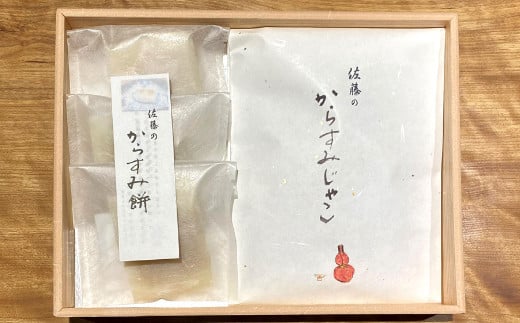 佐藤の
からすみ餅
佐藤の
からすみじゃこ